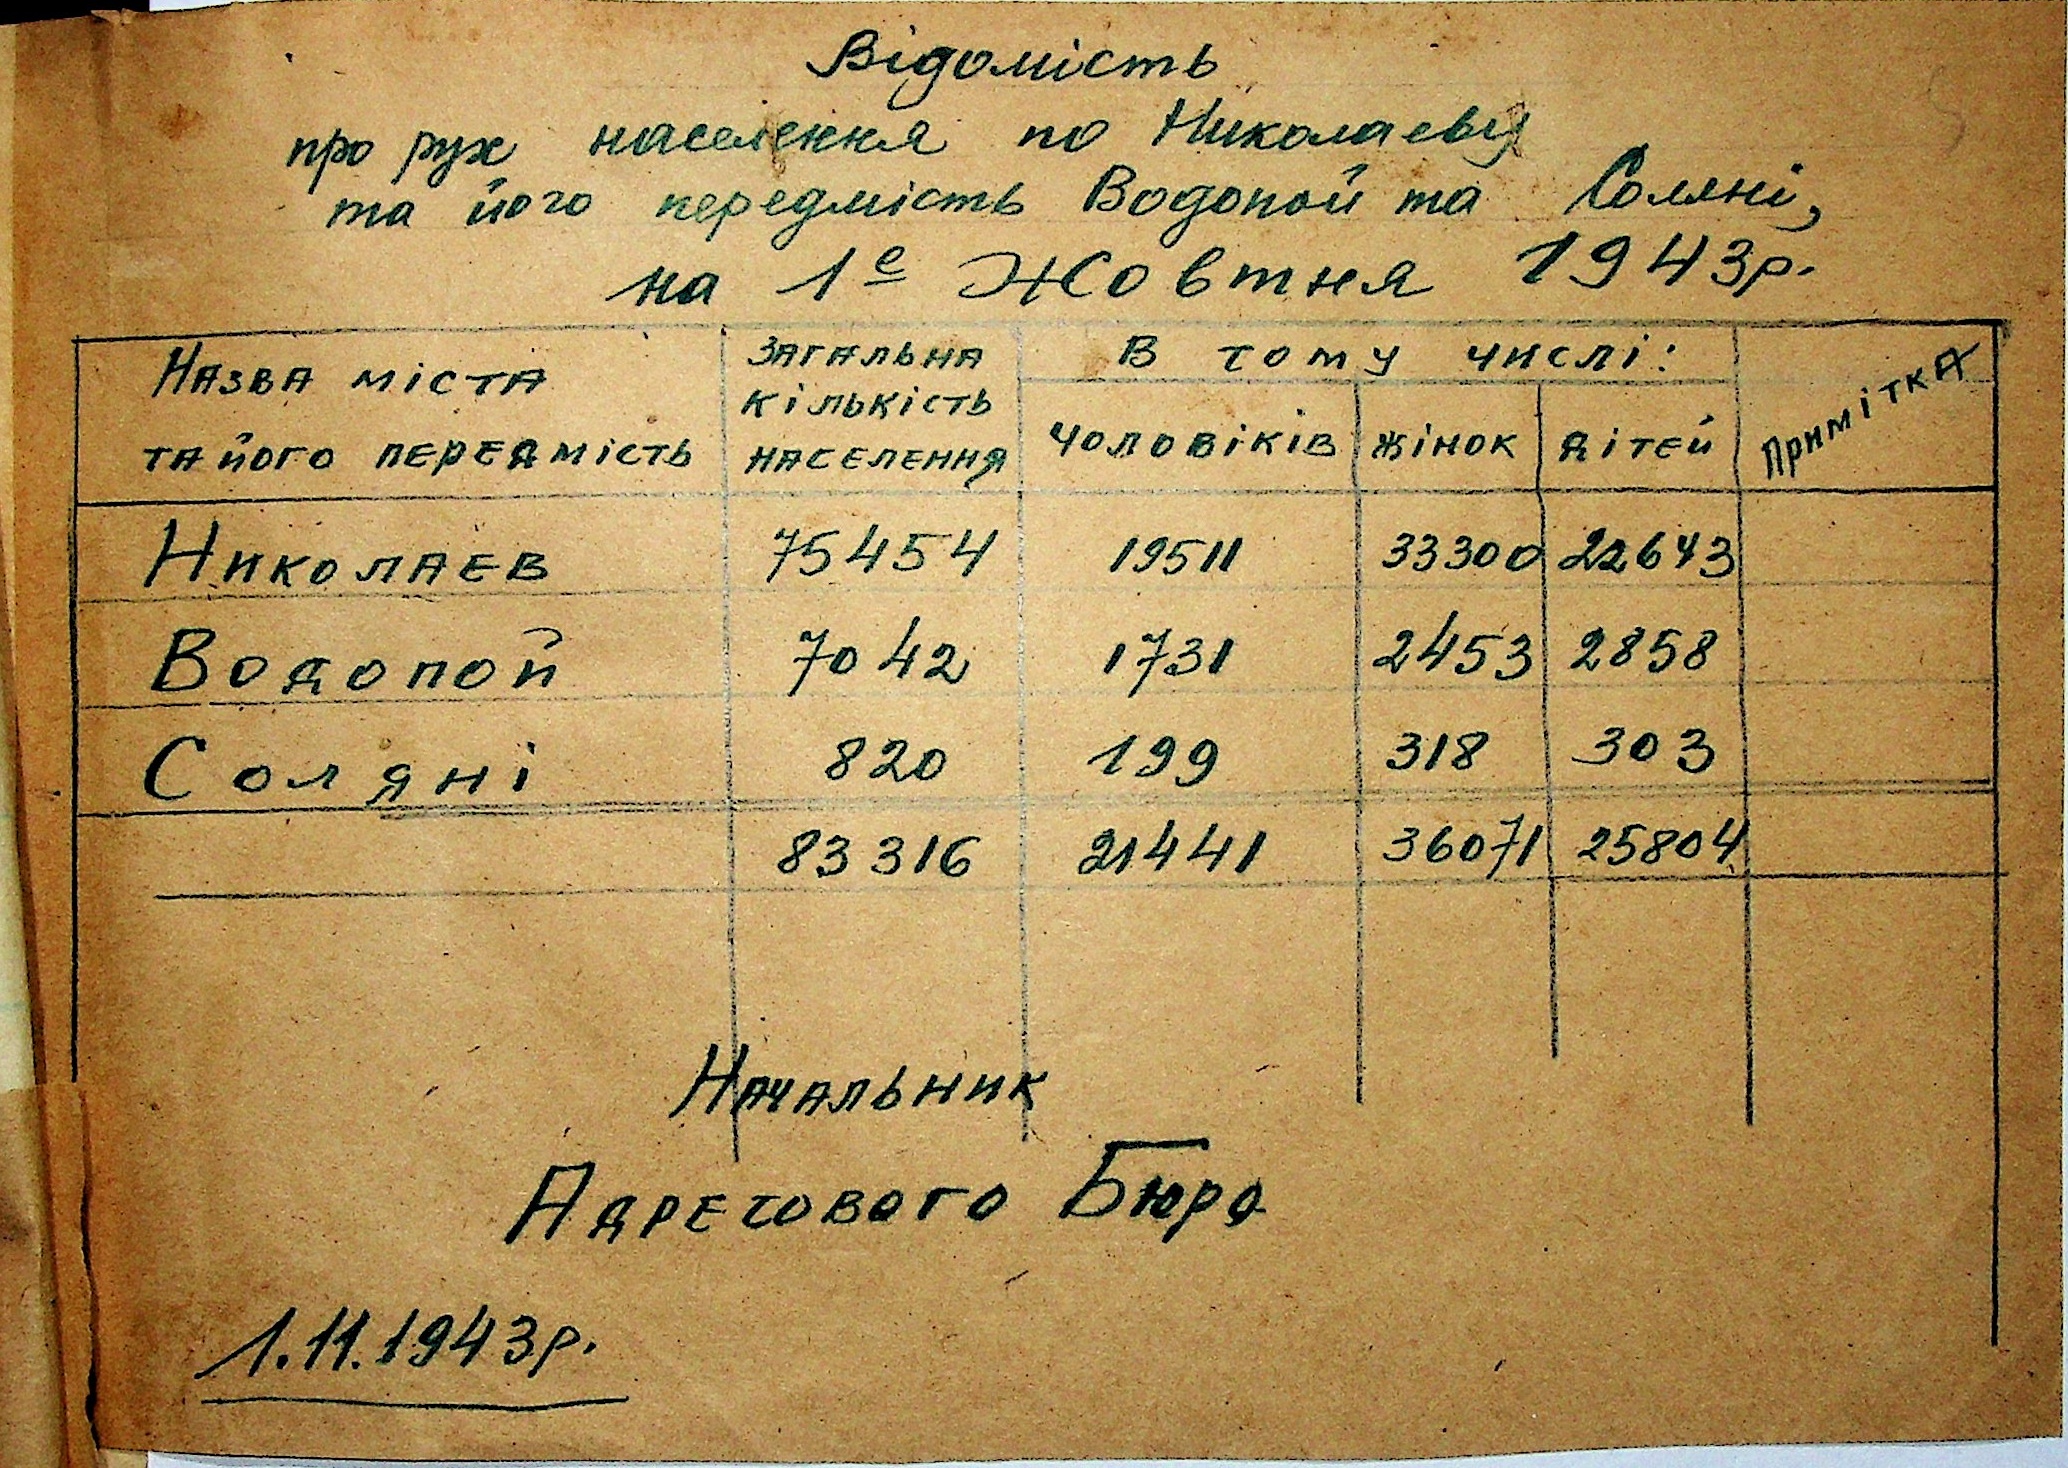 Відомість
про рух населення по Николаеву
та його передмість Водопой та Соляні,
на 1е Жовтня 1943р.
Назва міста та його передмість | Загальна кількість населення | В тому числі: чоловіків | жінок | дітей | Примітка
Николаев 75454 19511 33300 22643
Водопой 7042 1731 2453 2858
Соляні 820 199 318 303
83316 21441 36071 25804
Начальник
Адресового Бюро
1.11.1943р.